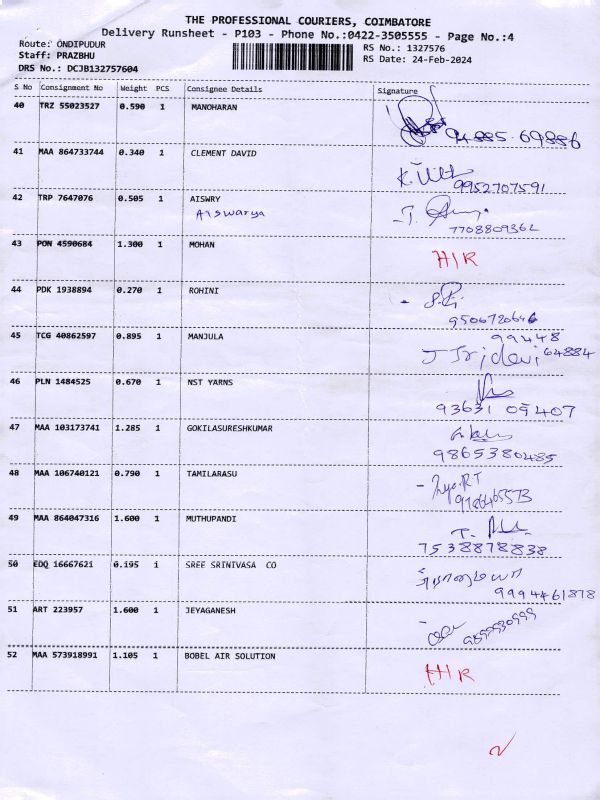 THE PROFESSIONAL COURIERS, COIMBATORE
Delivery Runsheet - P103 - Phone No.:0422-3505555 - Page No.:4
Route: ONDIPUDUR
RS No.: 1327576
Staff: PRAZBHU
RS Date: 24-Feb-2024
DRS No.: DCJB132757604
S No Consignment No Weight PCS Consignee Details Signature
40 TRZ 55023527 0.590 1 MANOHARAN
94885 69886
41 MAA 864733744 0.340 1 CLEMENT DAVID
9952707591
42 TRP 7647076 0.505 1 AISWRY
Aiswarya
7708809362
43 PON 4590684 1.300 1 MOHAN H/R
44 PDK 1938894 0.270 1 ROHINI
9506720646
45 TCG 40862597 0.895 1 MANJULA 99448
J Sridevi 64884
46 PLN 1484525 0.670 1 NST YARNS
93631 09407
47 MAA 103173741 1.285 1 GOKILASURESHKUMAR
9865380485
48 MAA 106740121 0.790 1 TAMILARASU
49 MAA 864047316 1.600 1 MUTHUPANDI
7538878838
50 EDQ 16667621 0.195 1 SREE SRINIVASA CO
9994461878
51 ART 223957 1.600 1 JEYAGANESH
52 MAA 573918991 1.105 1 BOBEL AIR SOLUTION H/R